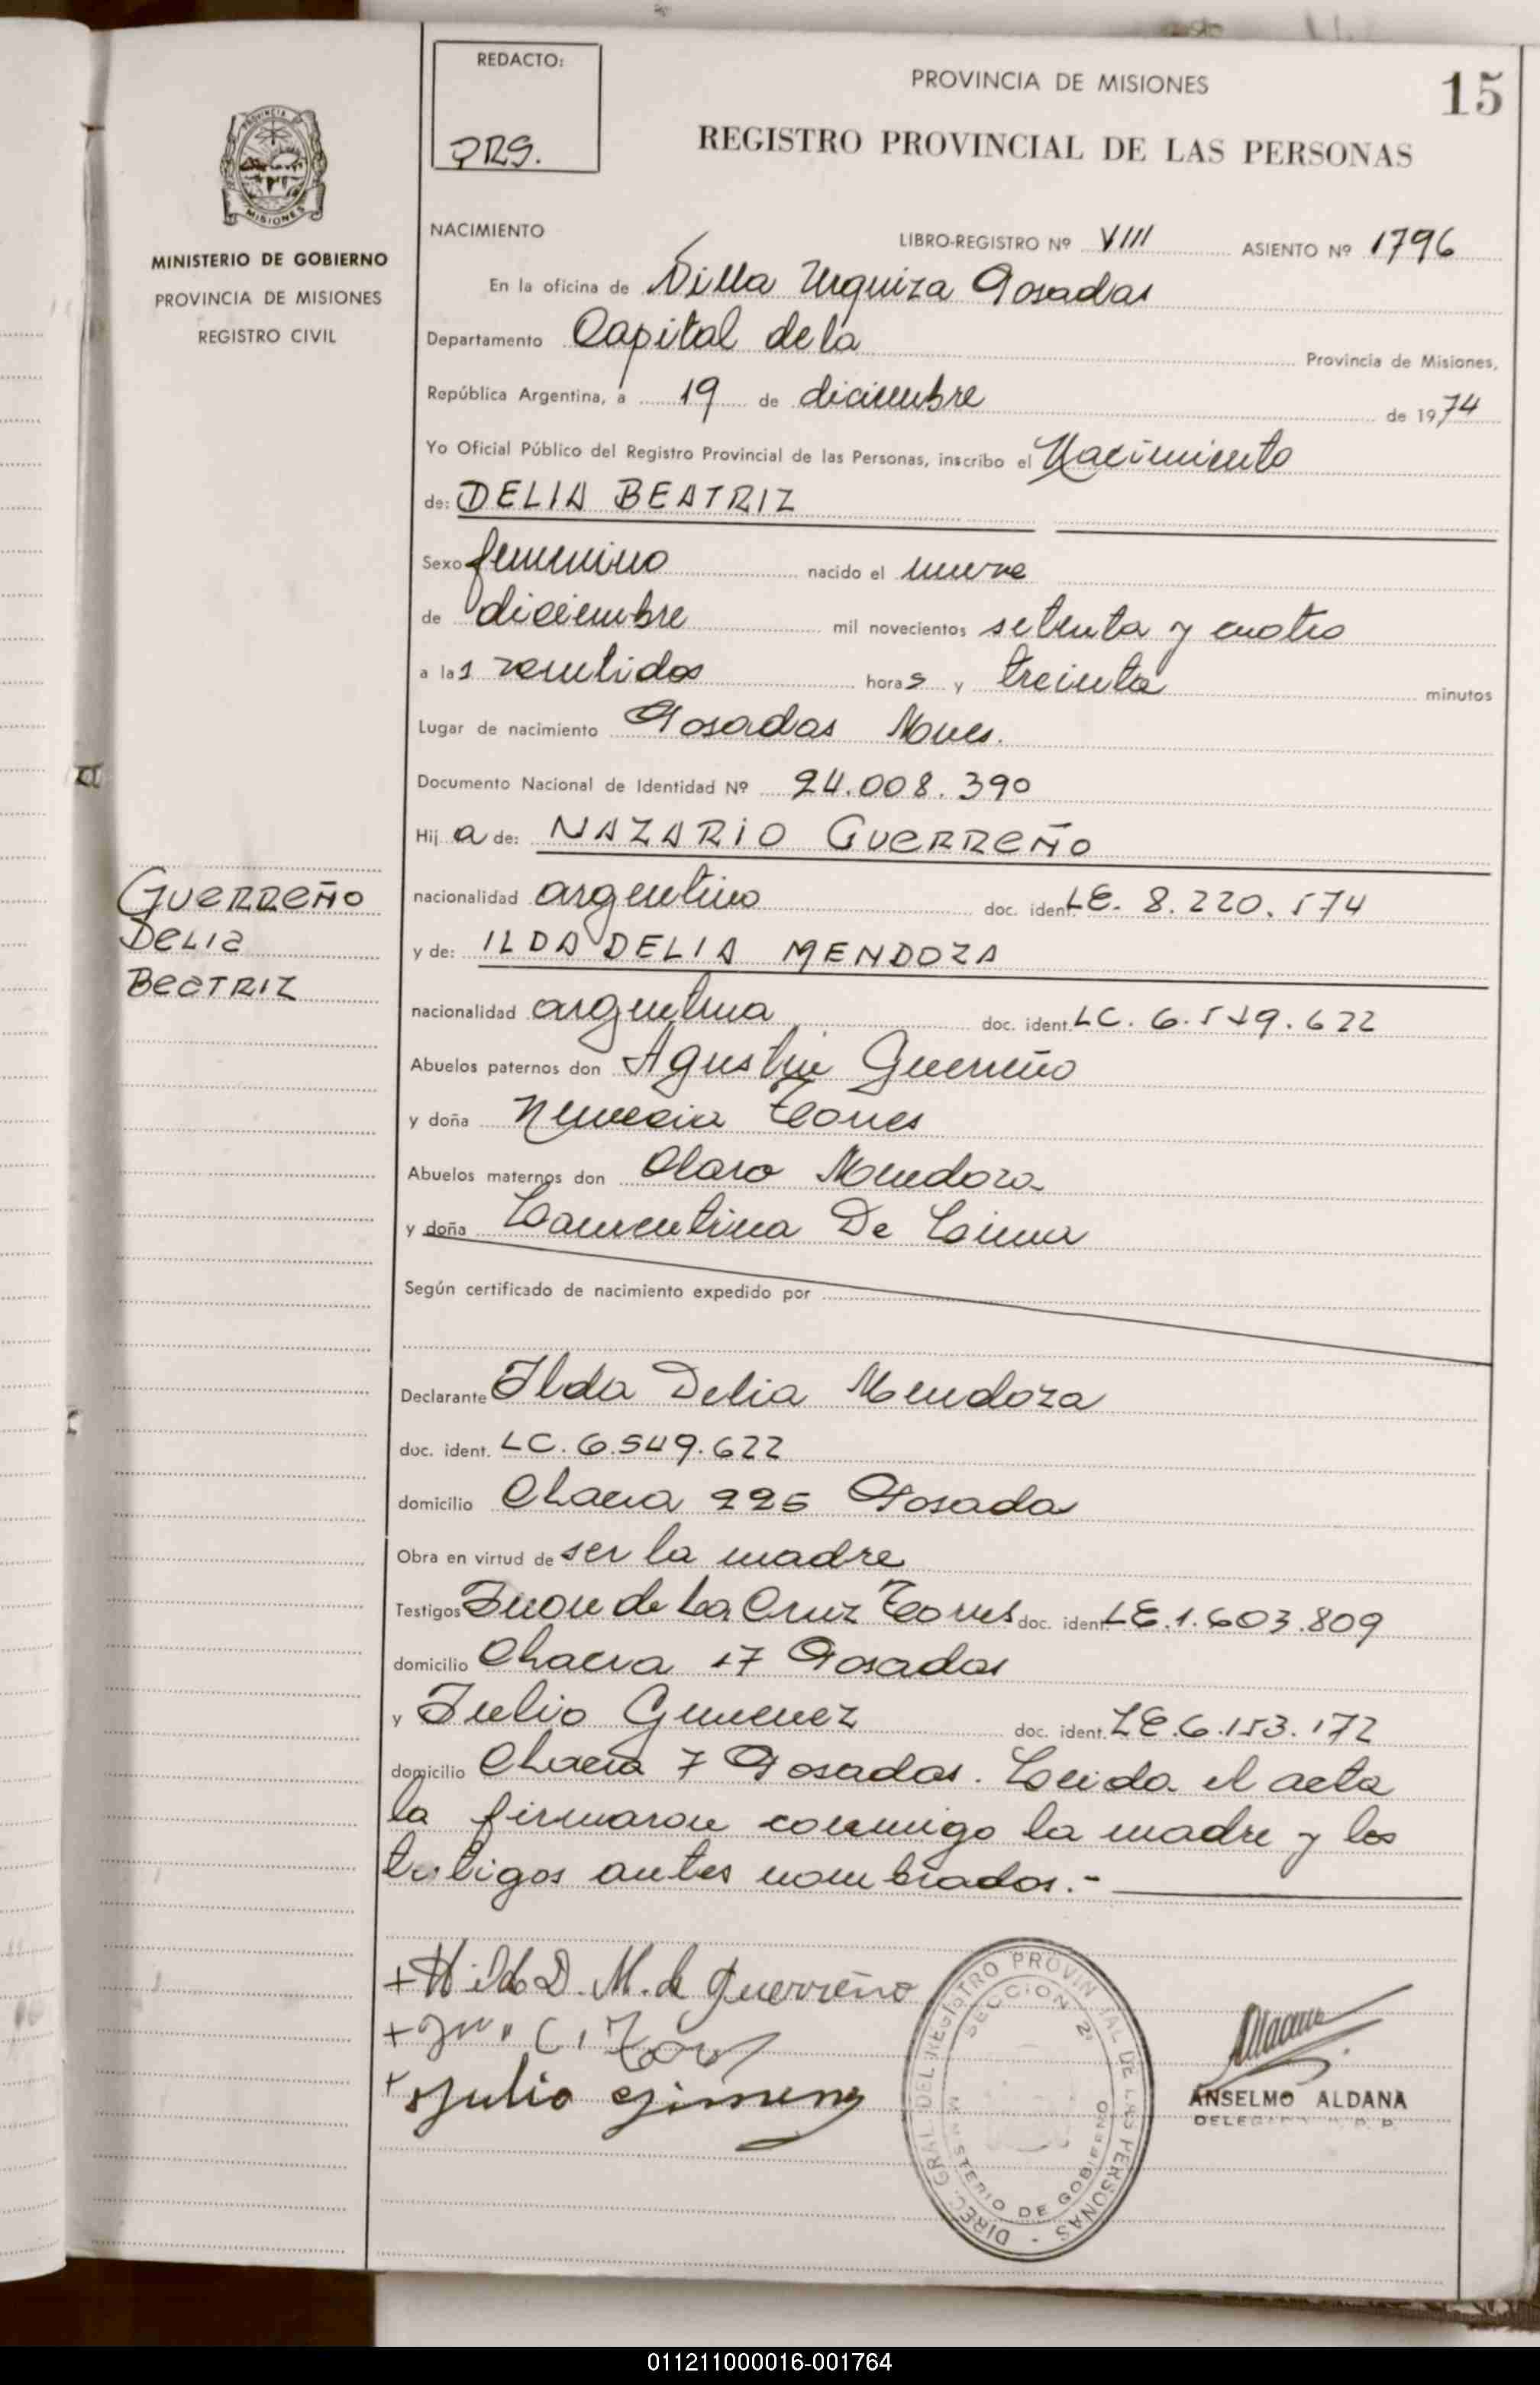 REDACTO:
PRS.
PROVINCIA DE MISIONES
15
REGISTRO PROVINCIAL DE LAS PERSONAS
PROVINCIA DE
MISIONES
MINISTERIO DE GOBIERNO
PROVINCIA DE MISIONES
REGISTRO CIVIL
NACIMIENTO
LIBRO-REGISTRO Nº VIII ASIENTO Nº 1796
En la oficina de Villa Urquiza Posadas
Departamento Capital de la Provincia de Misiones,
República Argentina, a 19 de diciembre de 1974
Yo Oficial Público del Registro Provincial de las Personas, inscribo el Nacimiento
de: DELIA BEATRIZ
Sexo femenino nacido el nueve
de diciembre mil novecientos setenta y cuatro
a las veintidos horas y treinta minutos
Lugar de nacimiento Posadas Mnes.
Documento Nacional de Identidad Nº 24.008.390
Hija de: NAZARIO GUERREÑO
GUERREÑO
DELIA
BEATRIZ
nacionalidad argentino doc. ident. LE. 8.220.574
y de: ILDA DELIA MENDOZA
nacionalidad argentina doc. ident. LC. 6.549.622
Abuelos paternos don Agustin Guerreño
y doña Nemecia Torres
Abuelos maternos don Claro Mendoza
y doña Laurentina De Lima
Según certificado de nacimiento expedido por
Declarante Ilda Delia Mendoza
doc. ident. LC. 6.549.622
domicilio Chacra 226 Posada
Obra en virtud de ser la madre
Testigos Juan de La Cruz Torres doc. ident. LE.1.603.809
domicilio Chacra 17 Posadas
y Julio Gimenez doc. ident. LE.6.153.172
domicilio Chacra 7 Posadas. Leida el acta
la firmaron conmigo la madre y los
testigos antes nombrados.-
+ Hilda D. M. de Guerreño
+ Jn. C. Torres
+ Julio Gimenez
DIREC. GRAL. DEL REGISTRO PROVINCIAL DE LAS PERSONAS -
SECCION 2ª
MINISTERIO DE GOBIERNO
ANSELMO ALDANA
011211000016-001764